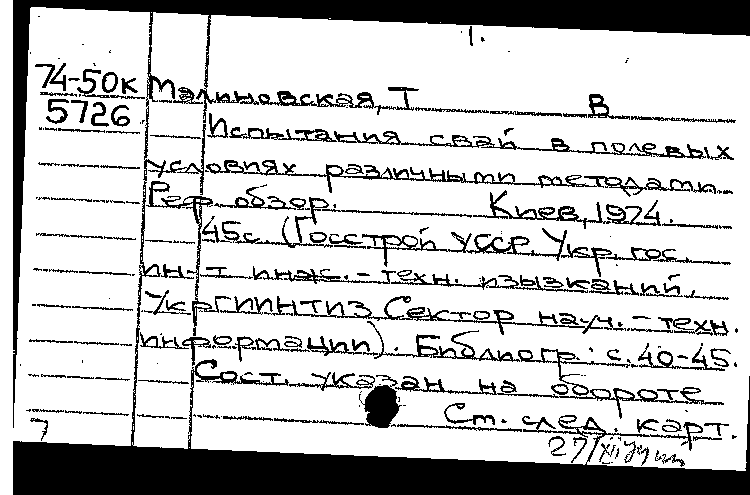 1.
74-50к Малиновская, Т В
5726 Испытания свай в полевых
условиях различными методами.
Реф. обзор. Киев, 1974.
45с. (Госстрой УССР. Укр. гос.
ин-т инж.-техн. изысканий.
УкрГИИНТИЗ Сектор науч.-техн.
информации). Библиогр.: с. 40-45.
Сост. указан на обороте
См. след. карт.
7 27/XII